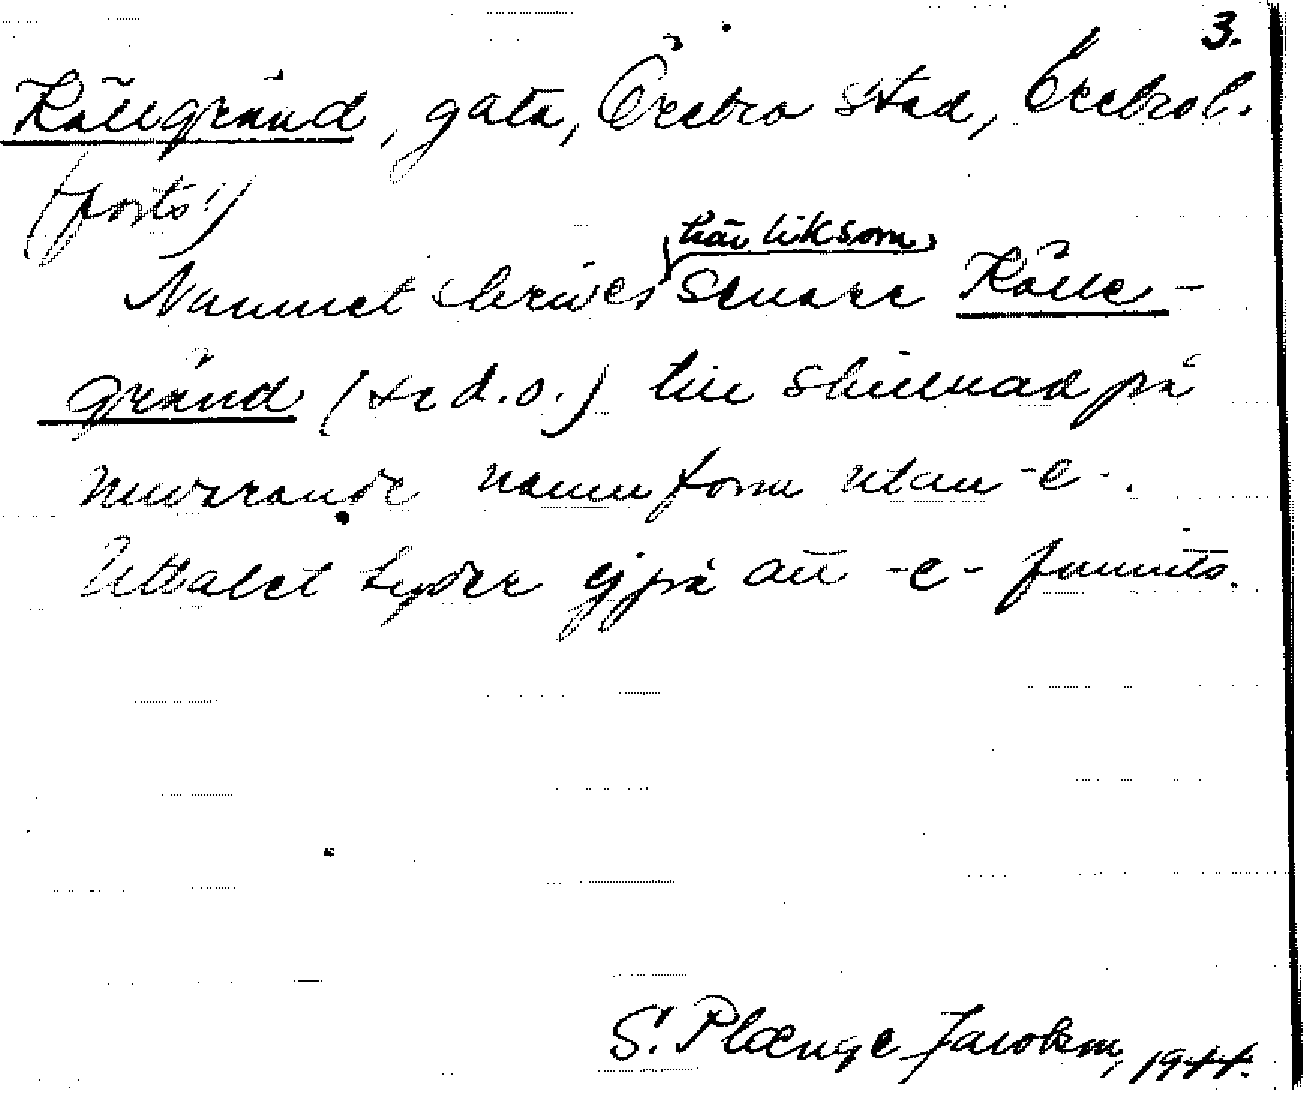 3.
Källgränd, gata, Örebro stad, Örebrol.
(forts.)
Namnet skrives här liksom senare Källe-
gränd (se d.o.) till skillnad på
nuvarande namnform utan -e-.
Uttalet tyder ej på att -e- funnits.
S. Plœnge Jacobson, 1944.